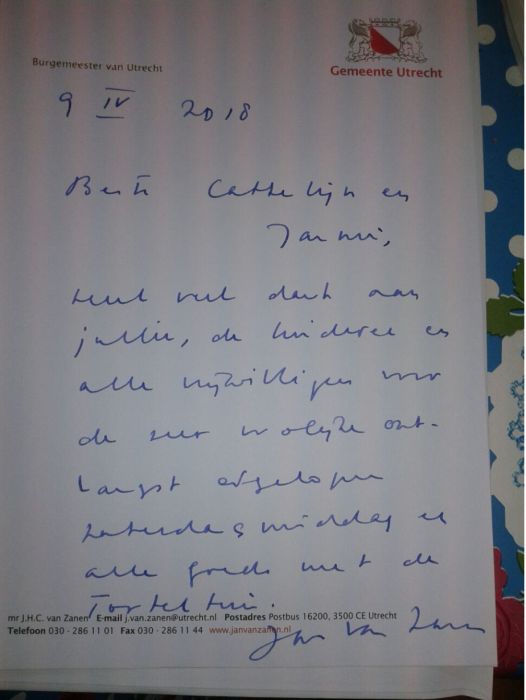 Burgemeester van Utrecht
Gemeente Utrecht
9 IV 2018
Beste Cathelijn en
Jannie,
heel veel dank aan
jullie, de kinderen en
alle vrijwilligers voor
de zeer vrolijke ont-
vangst afgelopen
zaterdagmiddag en
alle goeds met de
Torteltuin.
mr J.H.C. van Zanen E-mail j.van.zanen@utrecht.nl Postadres Postbus 16200, 3500 CE Utrecht
Telefoon 030 - 286 11 01 Fax 030 - 286 11 44 www.janvanzanen.nl
Jan van Zanen